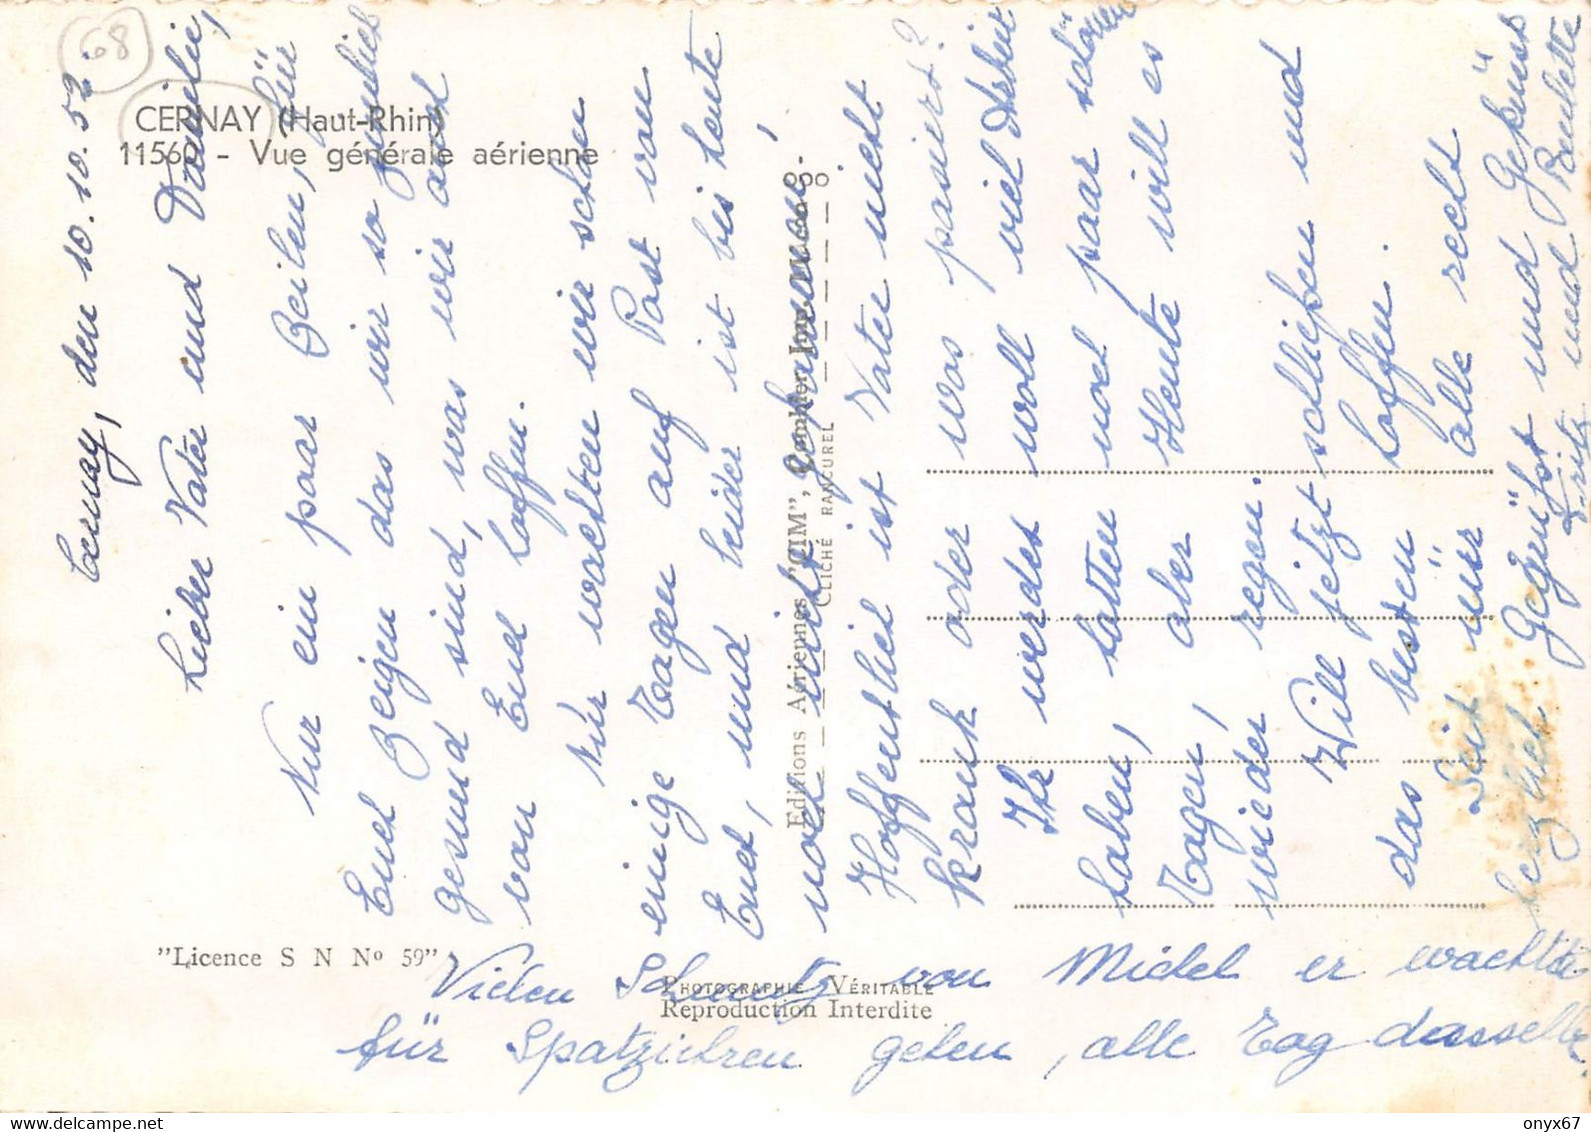 68
CERNAY (Haut-Rhin)
11560 - Vue générale aérienne
Cernay, den 10.10.52.
Lieber Vater und Familie,
Nur ein paar Zeilen, für
Euch zeigen das wir so ziemlich
gesund sind, was wir auch
von Euch hoffen.
Nur wachten wir schon
einige Tagen auf Post von
Euch, und leider ist bis heute
noch nicht gekommen!
Hoffentlich ist Vater nicht
krank oder was pasiert?
Ihr werdet woll viel Arbeit
haben, hatten noch paar schöne
Tagen, aber Heute will es
wieder regen.
Will jetzt schliefsen und
das besten hoffen.
Seit mir alle recht
herzlich Gegrüfst und Geküfst
Fritz und Paulette
"Licence S N Nº 59"
Vielen Schmutz von Michel er wachtet
für Spatzichren gehen, alle Tag dasselbe.
Editions Aériennes "CIM", Combier Imp. Mâcon
CLICHÉ RANCUREL
PHOTOGRAPHIE VÉRITABLE
Reproduction Interdite
onyx67